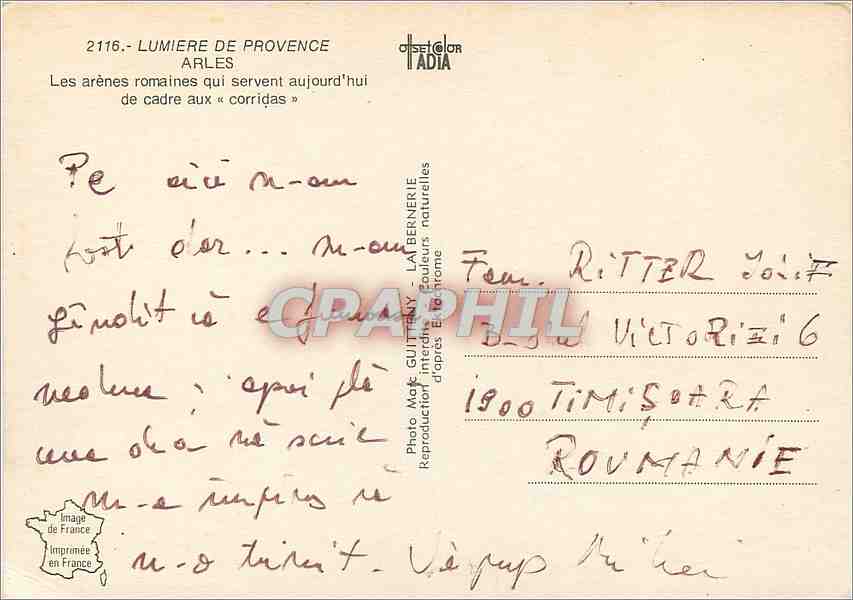 2116.- LUMIERE DE PROVENCE
ARLES
Les arènes romaines qui servent aujourd'hui
de cadre aux « corridas »
offset color
IADIA
Pe aici n-am
fost dar... m-am
gîndit că e frumoasă
vedere; apoi
ideea să scriu
m-a împins să
n-o trimit. Vă pup Mihai
Photo Marc GUITTENY - LA BERNERIE
Reproduction interdite Couleurs naturelles
d'après Extachrome
CPAPHIL
Fam. RiTTER IOSiF
B-dul ViCTORiEi 6
1900 TiMiŞOARA
ROUMANIE
Image
de France
Imprimée
en France